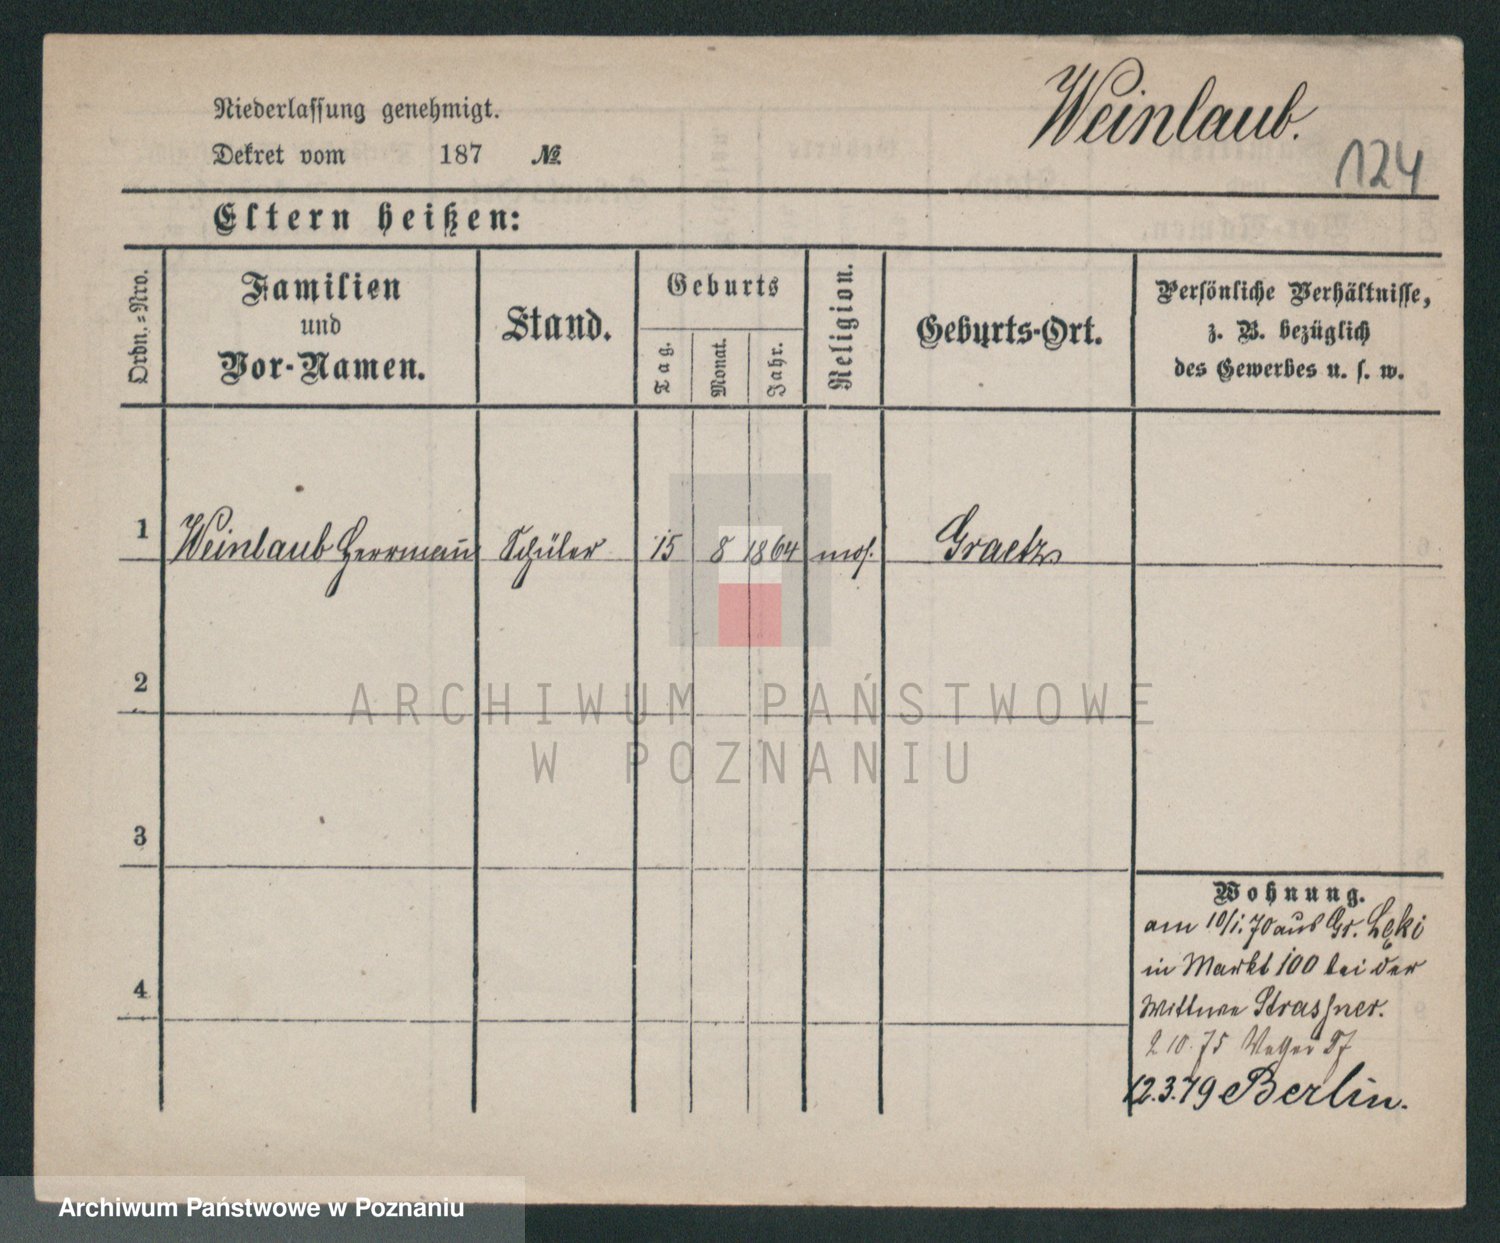 Weinlaub.
124
Niederlassung genehmigt.
Dekret vom 187 №
Eltern heißen:
Ordn.-Nro.
Familien
und
Vor-Namen.
Stand.
Geburts
Tag.
Monat.
Jahr.
Religion.
Geburts-Ort.
Persönliche Verhältnisse,
z. B. bezüglich
des Gewerbes u. s. w.
1 Weinlaub Herrmann Schüler 15 8 1864 mos. Graetz
2
3
4
Wohnung.
am 10/1. 70 aus Gr. Łęki
in Markt 100 bei der
Wittwe Strassner.
2 10. 75
12.3.79 Berlin.
ARCHIWUM PAŃSTWOWE
W POZNANIU
Archiwum Państwowe w Poznaniu